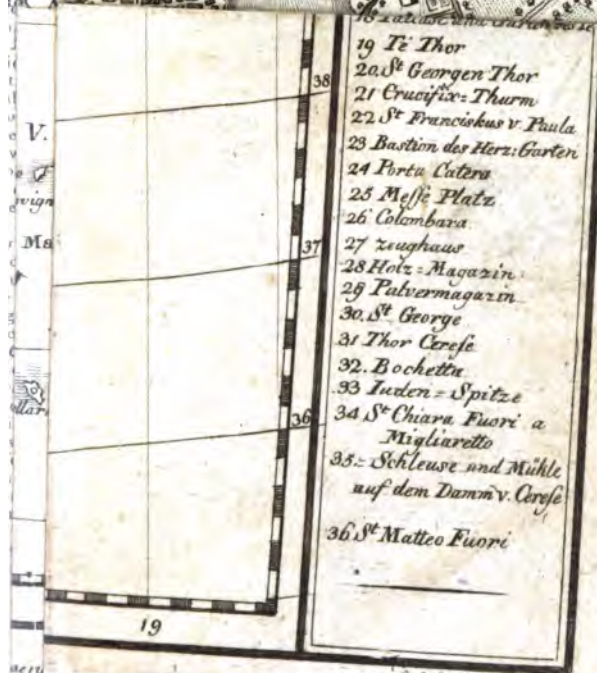 19 Té Thor
20. St Georgen Thor
21 Crucifix=Thurm
22 St Franciskus v. Paula
23 Bastion des Herz: Garten
24 Porta Catera
25 Messe Platz
26 Colombara
27 Zeughaus
28 Holz=Magazin
29 Pulvermagazin
30. St George
31 Thor Cerese
32. Bochetta
33 Iuden=Spitze
34 St Chiara Fuori a
Migliaretto
35.= Schleuse und Mühle
auf dem Damm v. Cerese
36 St Matteo Fuori
38
37
36
19
V.
Ma